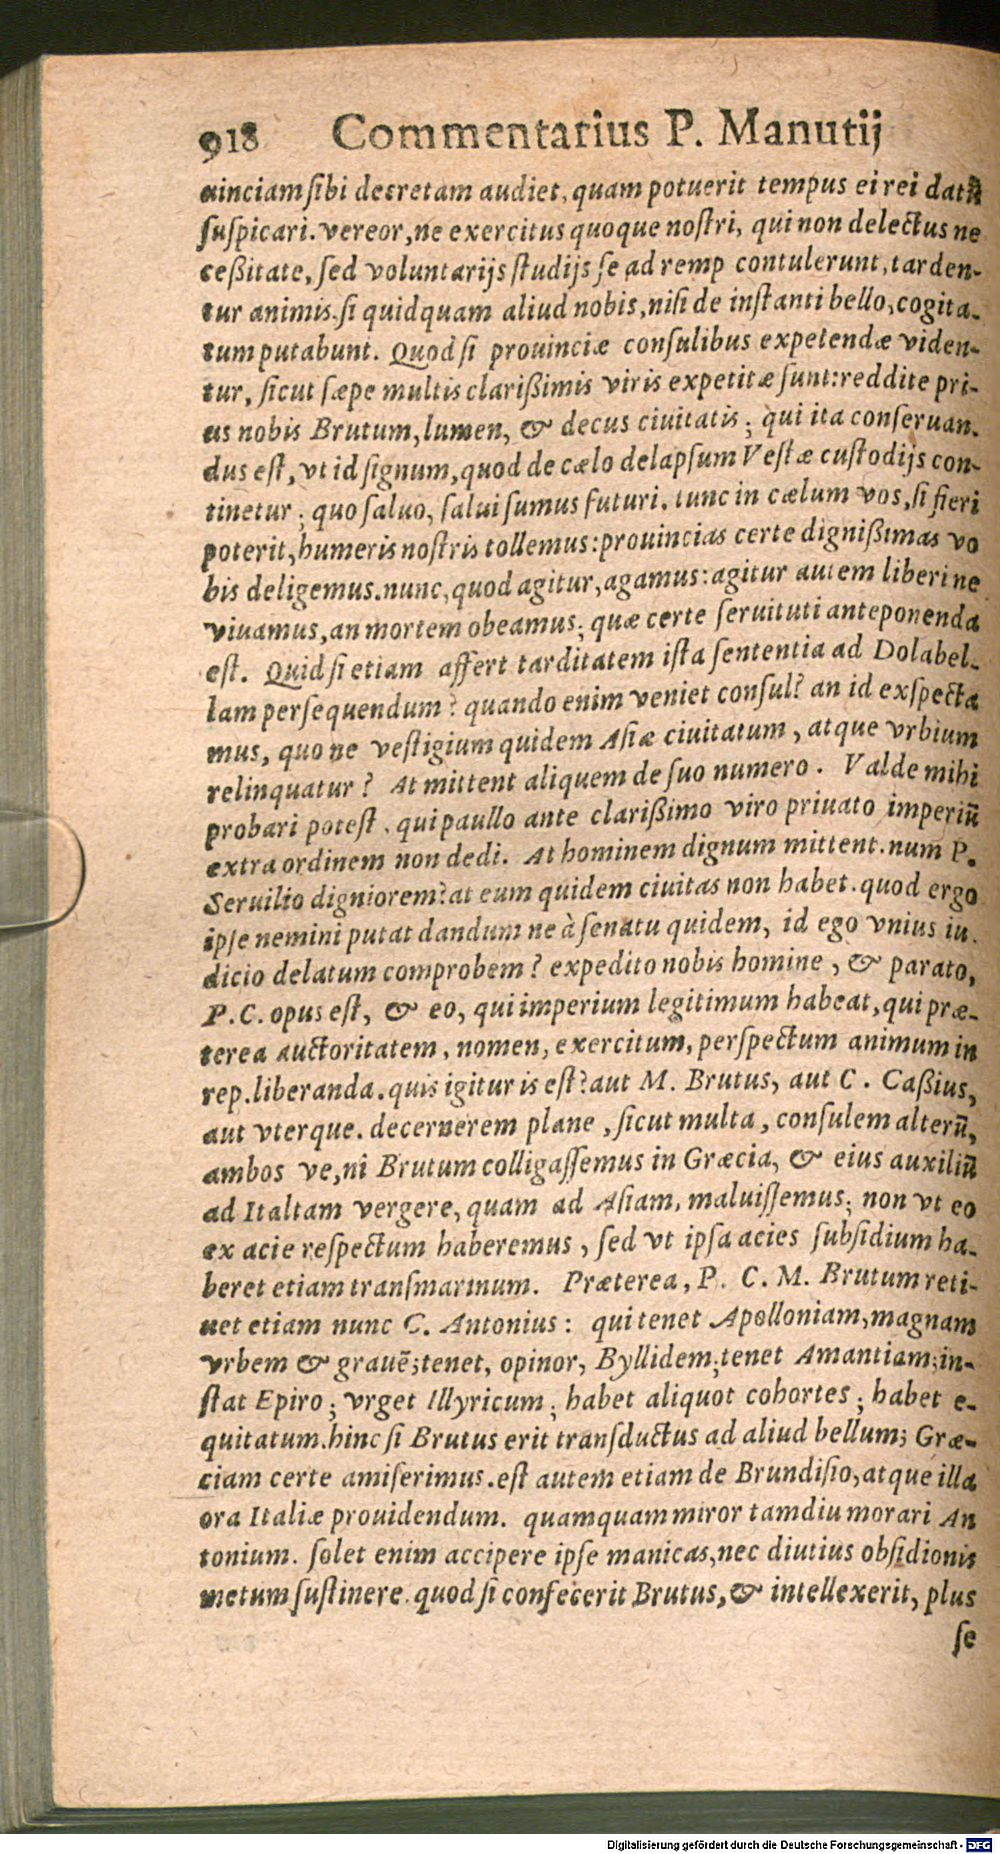 918 Commentarius P. Manutij
uinciam sibi decretam audiet, quam potuerit tempus ei rei datū
suspicari. vereor, ne exercitus quoque nostri, qui non delectus ne
ceßitate, sed voluntarijs studijs se ad remp contulerunt, tarden-
tur animis. si quidquam aliud nobis, nisi de instanti bello, cogita-
tum putabunt. Quod si prouinciæ consulibus expetendæ viden-
tur, sicut sæpe multis clarißimis viris expetitæ sunt: reddite pri-
us nobis Brutum, lumen, & decus ciuitatis; qui ita conseruan.
dus est, vt id signum, quod de cælo delapsum Vestæ custodijs con-
tinetur; quo saluo, salui sumus futuri. tunc in cælum vos, si fieri
poterit, humeris nostris tollemus: prouincias certe dignißimas vo
bis deligemus. nunc, quod agitur, agamus: agitur autem liberi ne
viuamus, an mortem obeamus; quæ certe seruituti anteponenda
est. Quid si etiam affert tarditatem ista sententia ad Dolabel-
lam persequendum? quando enim veniet consul? an id exspecta
mus, quo ne vestigium quidem Asiæ ciuitatum, atque vrbium
relinquatur? At mittent aliquem de suo numero. Valde mihi
probari potest, qui paullo ante clarißimo viro priuato imperiū
extra ordinem non dedi. At hominem dignum mittent. num P.
Seruilio digniorem? at eum quidem ciuitas non habet. quod ergo
ipse nemini putat dandum ne à senatu quidem, id ego vnius iu.
dicio delatum comprobem? expedito nobis homine, & parato,
P. C. opus est, & eo, qui imperium legitimum habeat, qui præ-
terea auctoritatem, nomen, exercitum, perspectum animum in
rep. liberanda. quis igitur is est? aut M. Brutus, aut C. Caßius,
aut vterque. decernerem plane, sicut multa, consulem alterū,
ambos ve, ni Brutum colligassemus in Græcia, & eius auxiliū
ad Italtam vergere, quam ad Asiam, maluissemus; non vt eo
ex acie respectum haberemus, sed vt ipsa acies subsidium ha-
beret etiam transmarinum. Præterea, P. C. M. Brutum reti-
net etiam nunc C. Antonius: qui tenet Apolloniam, magnam
vrbem & grauē; tenet, opinor, Byllidem; tenet Amantiam; in-
stat Epiro; vrget Illyricum; habet aliquot cohortes; habet e-
quitatum. hinc si Brutus erit transductus ad aliud bellum; Græ-
ciam certe amiserimus. est autem etiam de Brundisio, atque illa
ora Italiæ prouidendum. quamquam miror tamdiu morari An
tonium. solet enim accipere ipse manicas, nec diutius obsidionis
metum sustinere. quod si confecerit Brutus, & intellexerit, plus
se
Digitalisierung gefördert durch die Deutsche Forschungsgemeinschaft - DFG